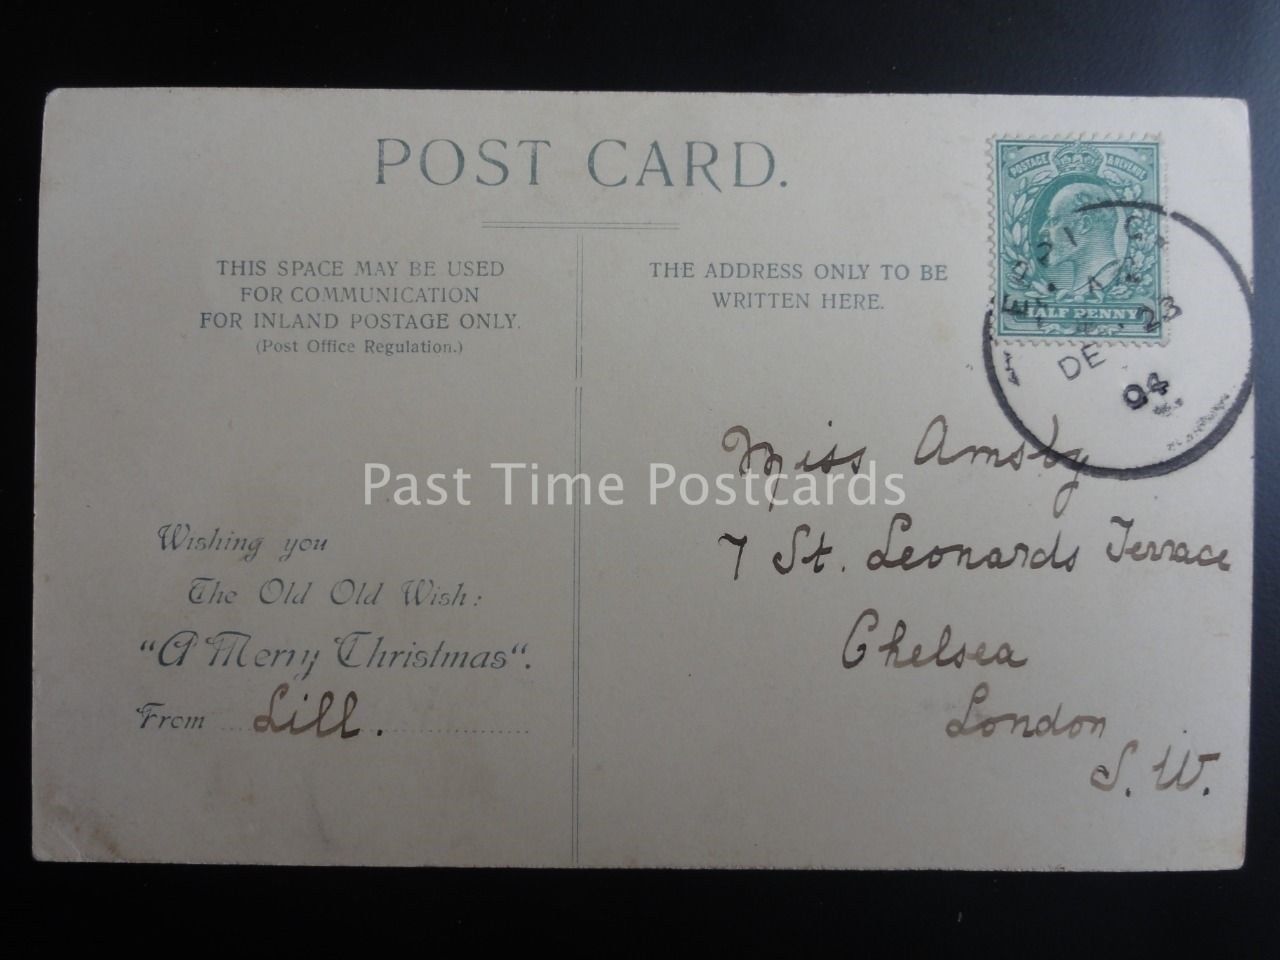 POST CARD.
THIS SPACE MAY BE USED
FOR COMMUNICATION
FOR INLAND POSTAGE ONLY.
(Post Office Regulation.)
THE ADDRESS ONLY TO BE
WRITTEN HERE.
POSTAGE & REVENUE
HALF PENNY
DE 23
04
Miss Amsby
7 St. Leonards Terrace
Chelsea
London
S. W.
Past Time Postcards
Wishing you
The Old Old Wish:
"A Merry Christmas".
From Lill.